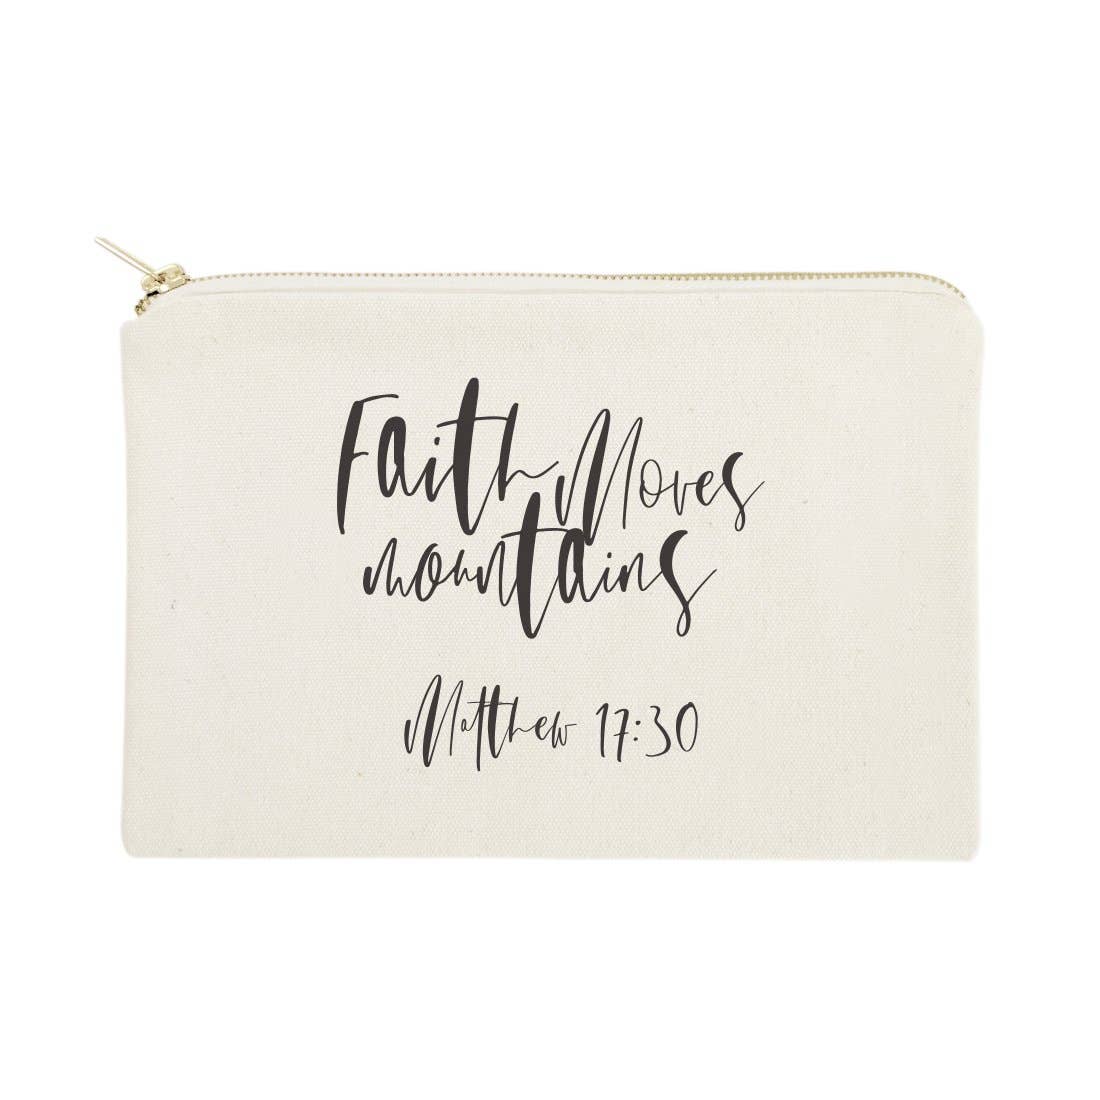 Faith Moves
mountains
Matthew 17:30